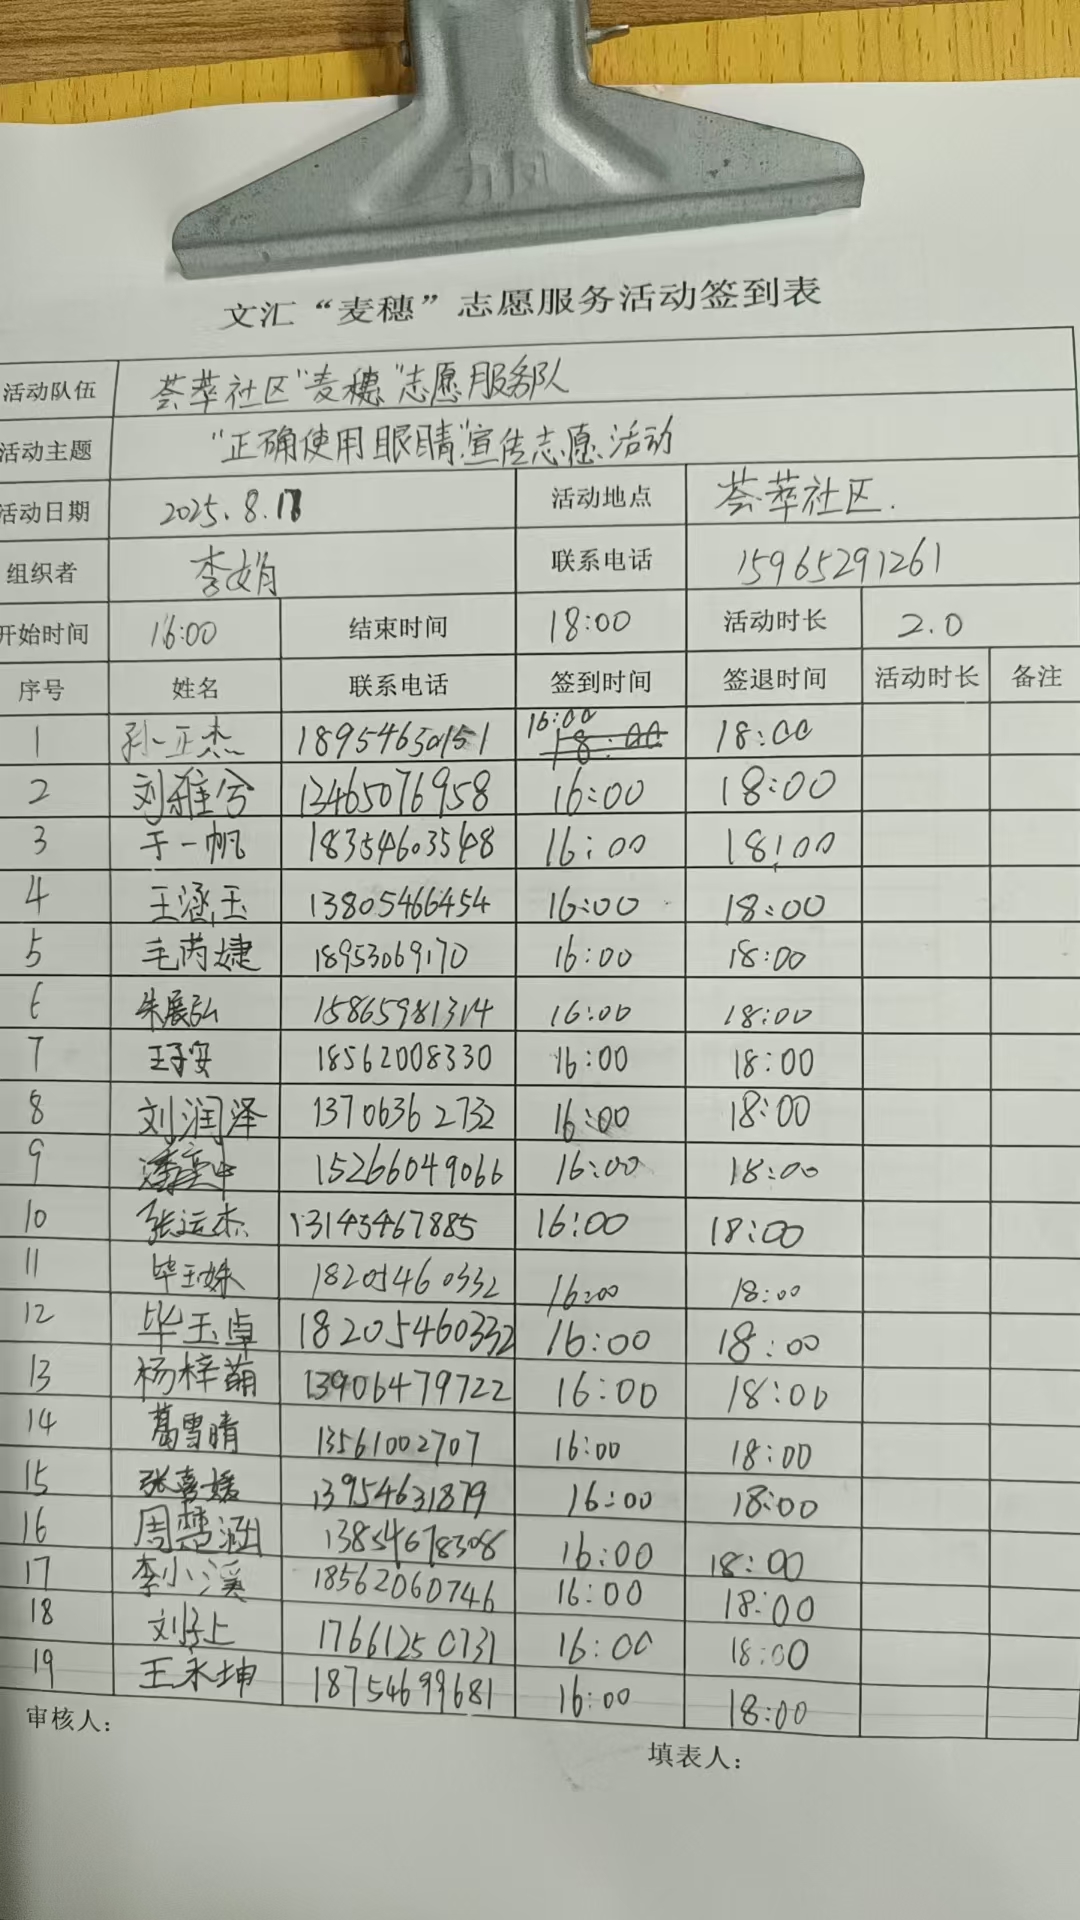 文汇“麦穗”志愿服务活动签到表
活动队伍 荟萃社区“麦穗”志愿服务队
活动主题 “正确使用眼睛”宣传志愿活动
活动日期 2025.8.17 活动地点 荟萃社区.
组织者 李娟 联系电话 15965291261
开始时间 16:00 结束时间 18:00 活动时长 2.0
序号 姓名 联系电话 签到时间 签退时间 活动时长 备注
1 孙正杰 18954650151 16:00 18:00 18:00
2 刘雅兮 13465076958 16:00 18:00
3 于一帆 18354603548 16:00 18:00
4 王涵玉 13805466454 16:00 18:00
5 毛芮婕 18953069170 16:00 18:00
6 朱展弘 15865981314 16:00 18:00
7 王子安 18562008330 16:00 18:00
8 刘润泽 13706362732 16:00 18:00
9 15266049066 16:00 18:00
10 张运杰 13145467885 16:00 18:00
11 毕玉姝 18205460332 16:00 18:00
12 毕玉卓 18205460332 16:00 18:00
13 杨梓萌 13906479722 16:00 18:00
14 葛雪晴 13561002707 16:00 18:00
15 张喜媛 13954631879 16:00 18:00
16 周楚涵 13854678308 16:00 18:00
17 李小溪 18562060746 16:00 18:00
18 刘子上 17661250731 16:00 18:00
19 王永坤 18754699681 16:00 18:00
审核人：
填表人：